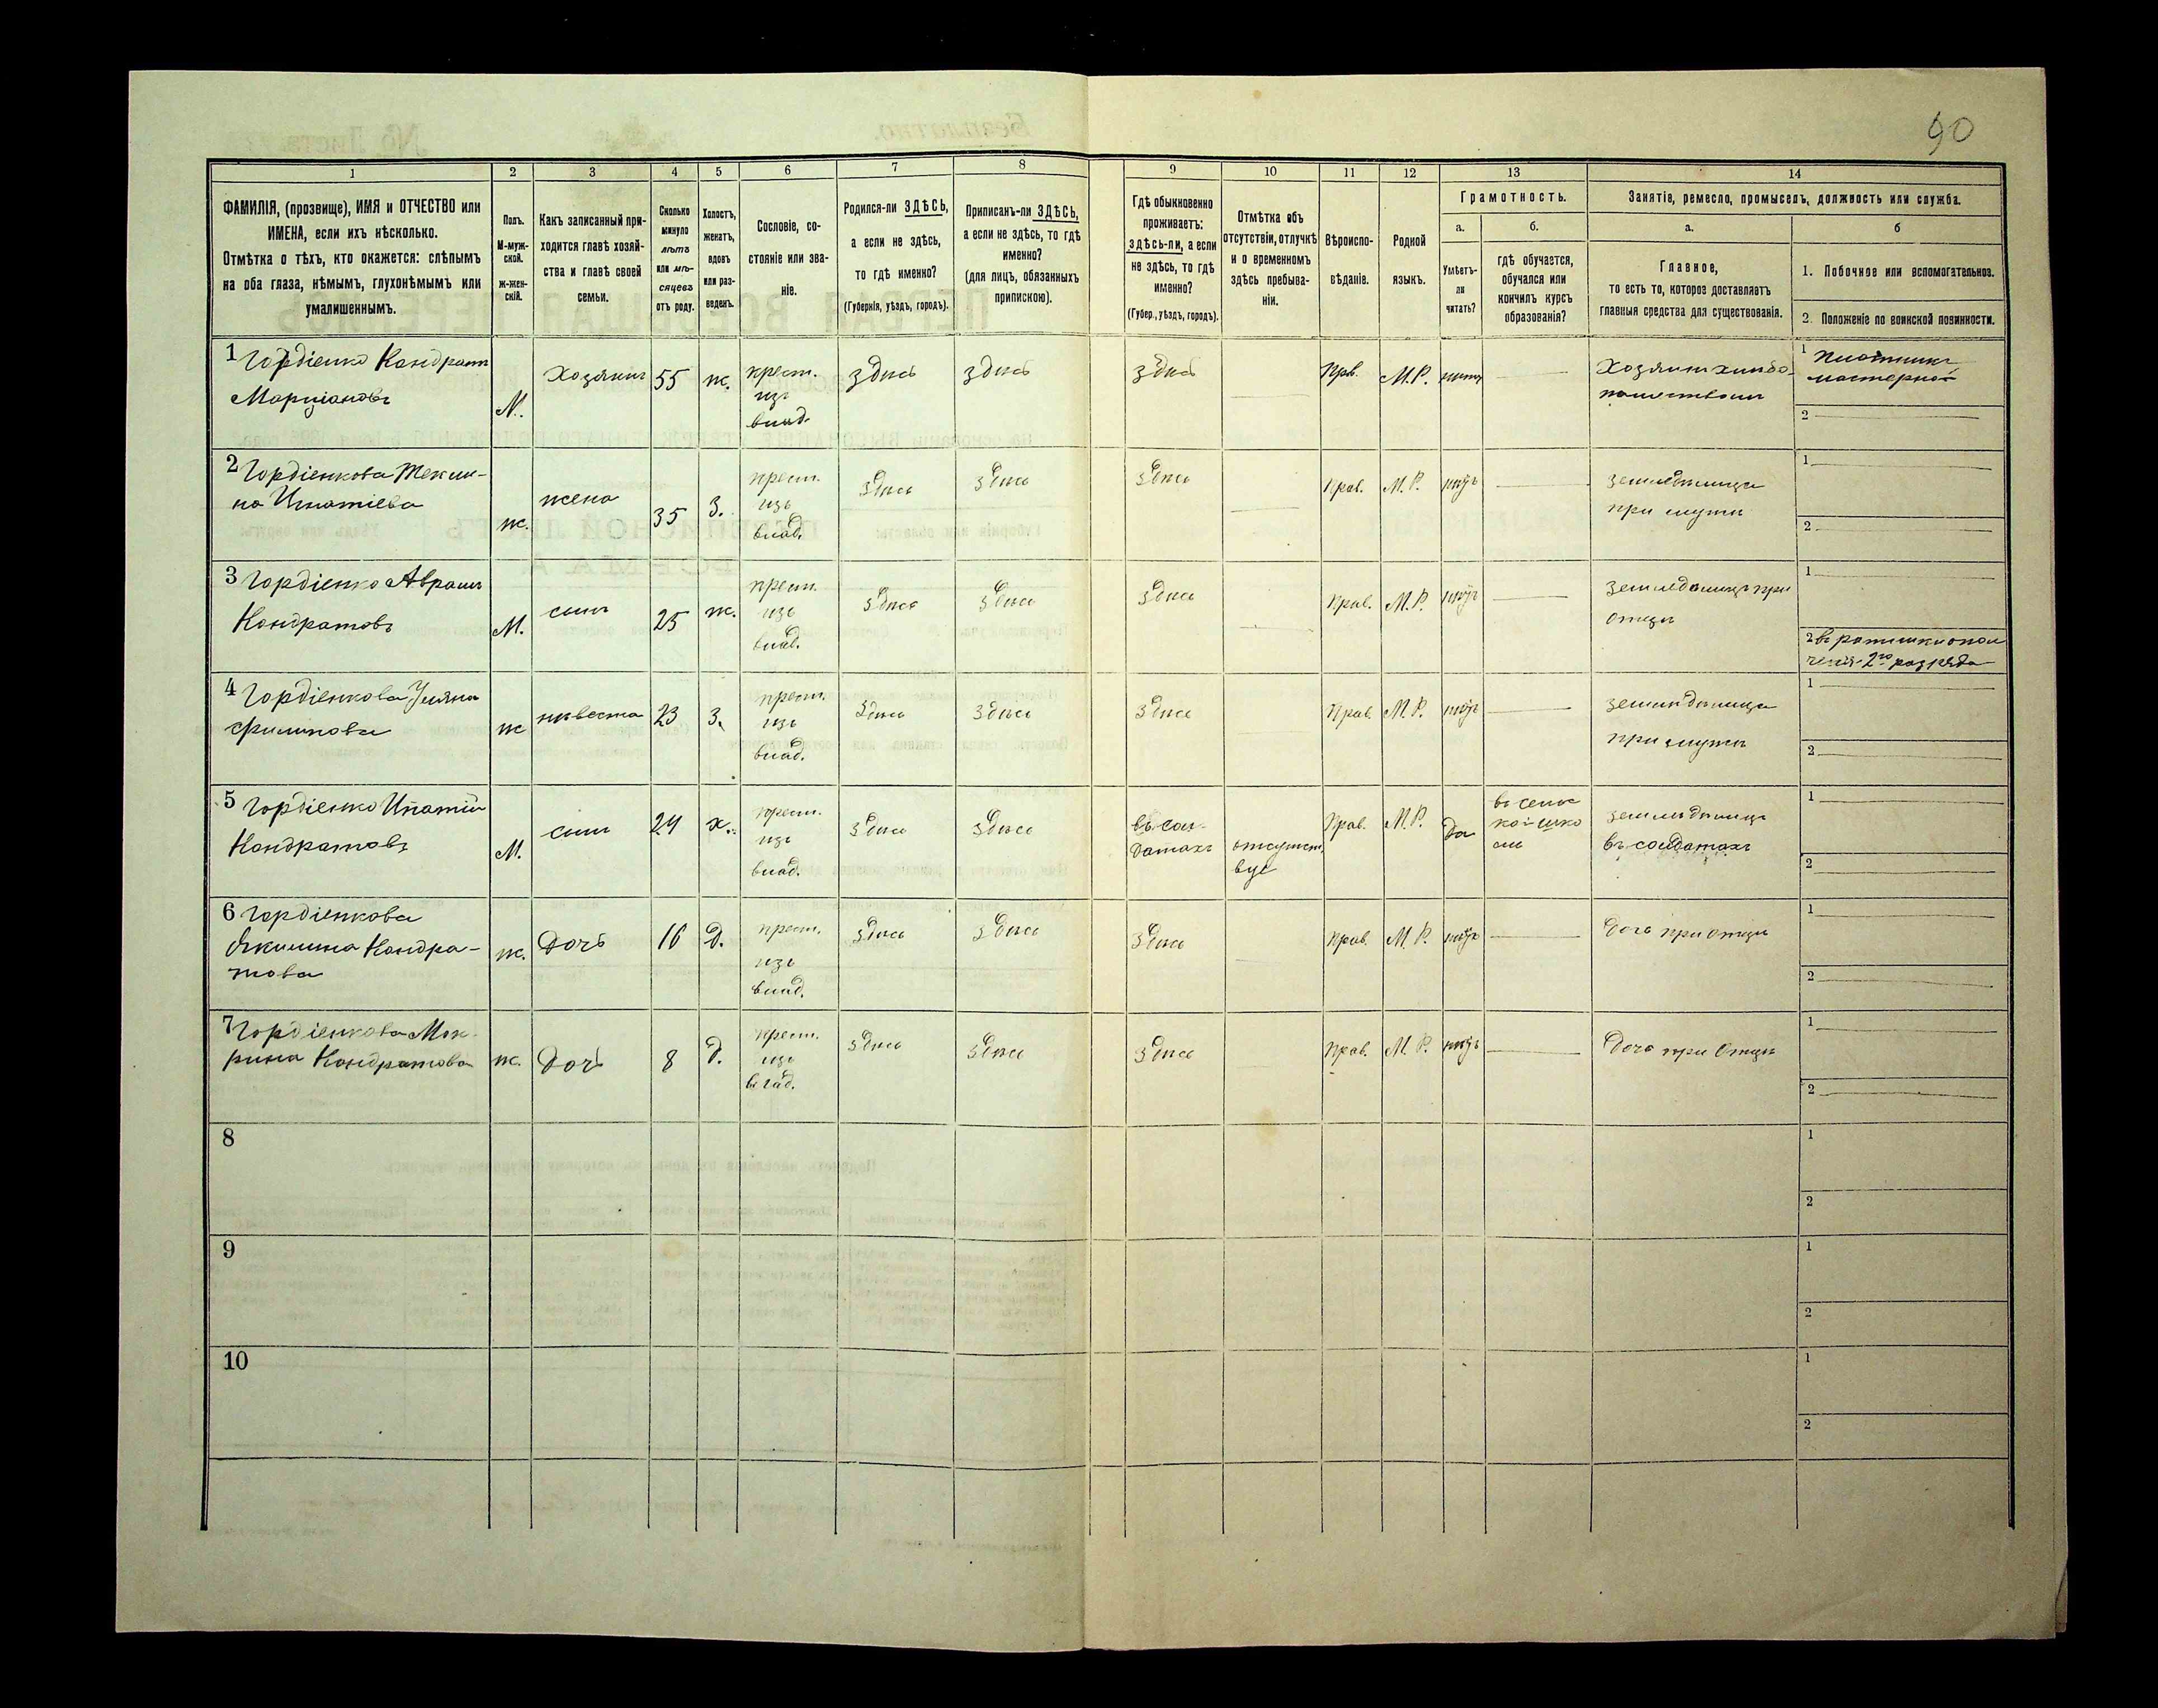 90
1
2
3
4
5
6
7
8
9
10
11
12
13
14
ФАМИЛІЯ, (прозвище), ИМЯ и ОТЧЕСТВО или
ИМЕНА, если ихъ нѣсколько.
Отмѣтка о тѣхъ, кто окажется: слѣпымъ
на оба глаза, нѣмымъ, глухонѣмымъ или
умалишеннымъ.
Полъ.
М-муж-
ской.
ж-жен-
скій.
Какъ записанный при-
ходится главѣ хозяй-
ства и главѣ своей
семьи.
Сколько
минуло
лѣтъ
или мѣ-
сяцевъ
отъ роду.
Холостъ,
женатъ,
вдовъ
или раз-
веденъ.
Сословіе, со-
стояніе или зва-
ніе.
Родился-ли ЗДѢСЬ,
а если не здѣсь,
то гдѣ именно?
(Губернія, уѣздъ, городъ).
Приписанъ-ли ЗДѢСЬ,
а если не здѣсь, то гдѣ
именно?
(для лицъ, обязанныхъ
припискою).
Гдѣ обыкновенно
проживаетъ:
здѣсь-ли, а если
не здѣсь, то гдѣ
именно?
(Губер., уѣздъ, городъ).
Отмѣтка объ
отсутствіи, отлучкѣ
и о временномъ
здѣсь пребыва-
ніи.
Вѣроиспо-
вѣданіе.
Родной
языкъ.
Грамотность.
а.
Умѣетъ-
ли
читать?
б.
гдѣ обучается,
обучался или
кончилъ курсъ
образованія?
Занятія, ремесло, промыселъ, должность или служба.
а.
Главное,
то есть то, которое доставляетъ
главныя средства для существованія.
б
1. Побочное или вспомогательное.
2. Положеніе по воинской повинности.
1 Гордіенко Кондратъ
Марціановъ
М.
Хозяинъ
55
ж.
крест.
изъ
влад.
здѣсь
здѣсь
здѣсь
Прв.
М.Р.
нѣтъ
Хозяинъ хлѣбо-
пашествомъ
1 Плотникъ
2
2 Гордіенкова Текли-
на Игнатіева
ж.
жена
35
З.
крест.
изъ
влад.
здѣсь
здѣсь
здѣсь
Прав.
М.Р.
нѣтъ
при мужѣ
1
2
3 Гордіенко Аврамъ
Кондратовъ
М.
сынъ
25
ж.
крест.
изъ
влад.
здѣсь
здѣсь
здѣсь
Прав.
М.Р.
нѣтъ
земледѣлецъ при
отцѣ
1
2 въ ратники опол
ченія 2го разряда
4 Гордіенкова Уляна
Филипова
ж
нѣвеста
23
З.
крест.
изъ
влад.
здѣсь
здѣсь
здѣсь
Прав.
М.Р.
нѣтъ
при мужѣ
1
2
5 Гордіенко Ипатій
Кондратовъ
М.
сынъ
24
х.
крест.
изъ
влад.
здѣсь
здѣсь
въ сол-
датахъ
отсутст
вуе
Прав.
М.Р.
да
въ сельс
кой шко
лѣ
земледѣлецъ
въ солдатахъ
1
2
6 Гордіенкова
Якилина Кондра-
това
ж.
Дочь
16
Д.
крест.
изъ
влад.
здѣсь
здѣсь
здѣсь
Прав.
М.Р.
нѣтъ
Дочь при отцѣ
1
2
7 Гордіенкова Мок
рина Кондратова
ж.
Дочь
8
Д.
крест.
изъ
влад.
здѣсь
здѣсь
здѣсь
Прав.
М.Р.
нѣтъ
Дочь при Отцѣ
1
2
8
1
2
9
1
2
10
1
2